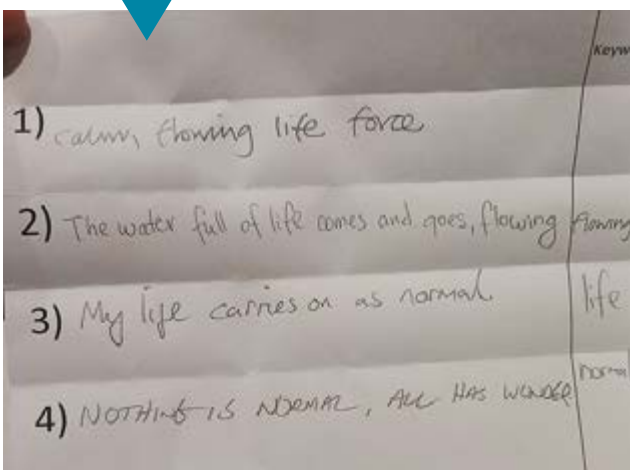 Keyw
1) calm, flowing life force
2) The water full of life comes and goes, flowing flowing
3) My life carries on as normal. life
4) NOTHING IS NORMAL, ALL HAS WONDER normal